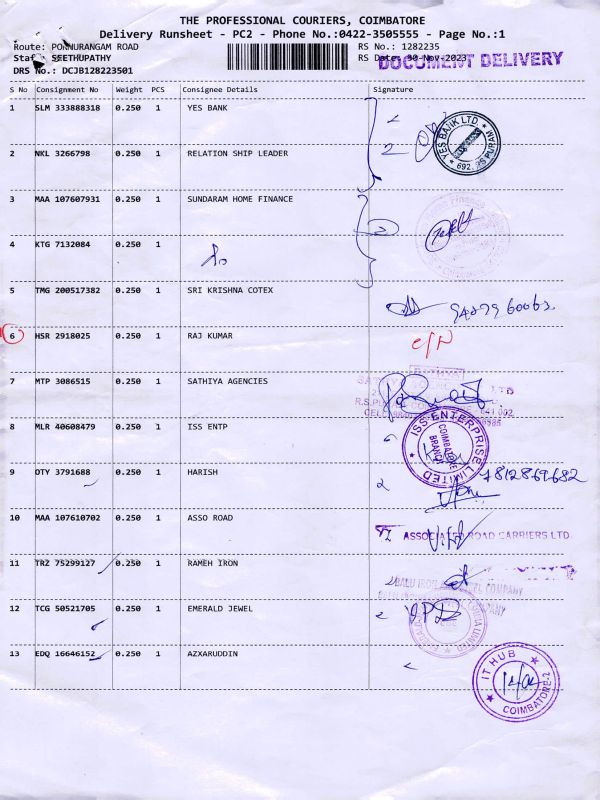 THE PROFESSIONAL COURIERS, COIMBATORE
Delivery Runsheet - PC2 - Phone No.:0422-3505555 - Page No.:1
Route: PONNURANGAM ROAD RS No.: 1282235
Staff: SEETHUPATHY RS Date: 30-Nov-2023
DOCUMENT DELIVERY
DRS No.: DCJB128223501
S No Consignment No Weight PCS Consignee Details Signature
1 SLM 333888318 0.250 1 YES BANK
YES BANK LTD.
2 NKL 3266798 0.250 1 RELATION SHIP LEADER 2
3 MAA 107607931 0.250 1 SUNDARAM HOME FINANCE
4 KTG 7132084 0.250 1
5 TMG 200517382 0.250 1 SRI KRISHNA COTEX
6 HSR 2918025 0.250 1 RAJ KUMAR
7 MTP 3086515 0.250 1 SATHIYA AGENCIES
8 MLR 40608479 0.250 1 ISS ENTP
ISS ENTERPRISE LIMITED
COIMBATORE
BRANCH
9 OTY 3791688 0.250 1 HARISH 7812869682
10 MAA 107610702 0.250 1 ASSO ROAD
ASSOCIATED ROAD CARRIERS LTD
11 TRZ 75299127 0.250 1 RAMEH IRON
12 TCG 50521705 0.250 1 EMERALD JEWEL
13 EDQ 16646152 0.250 1 AZXARUDDIN
IT HUB
COIMBATORE-2